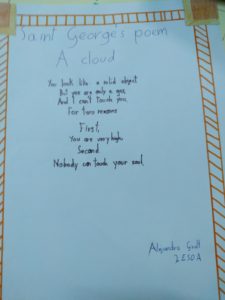 Saint George's poem
A cloud
You look like a solid object
But you are only a gas,
And I can't touch you,
For two reasons
First,
You are very high,
Second
Nobody can touch your soul
Alejandro
2ESOA